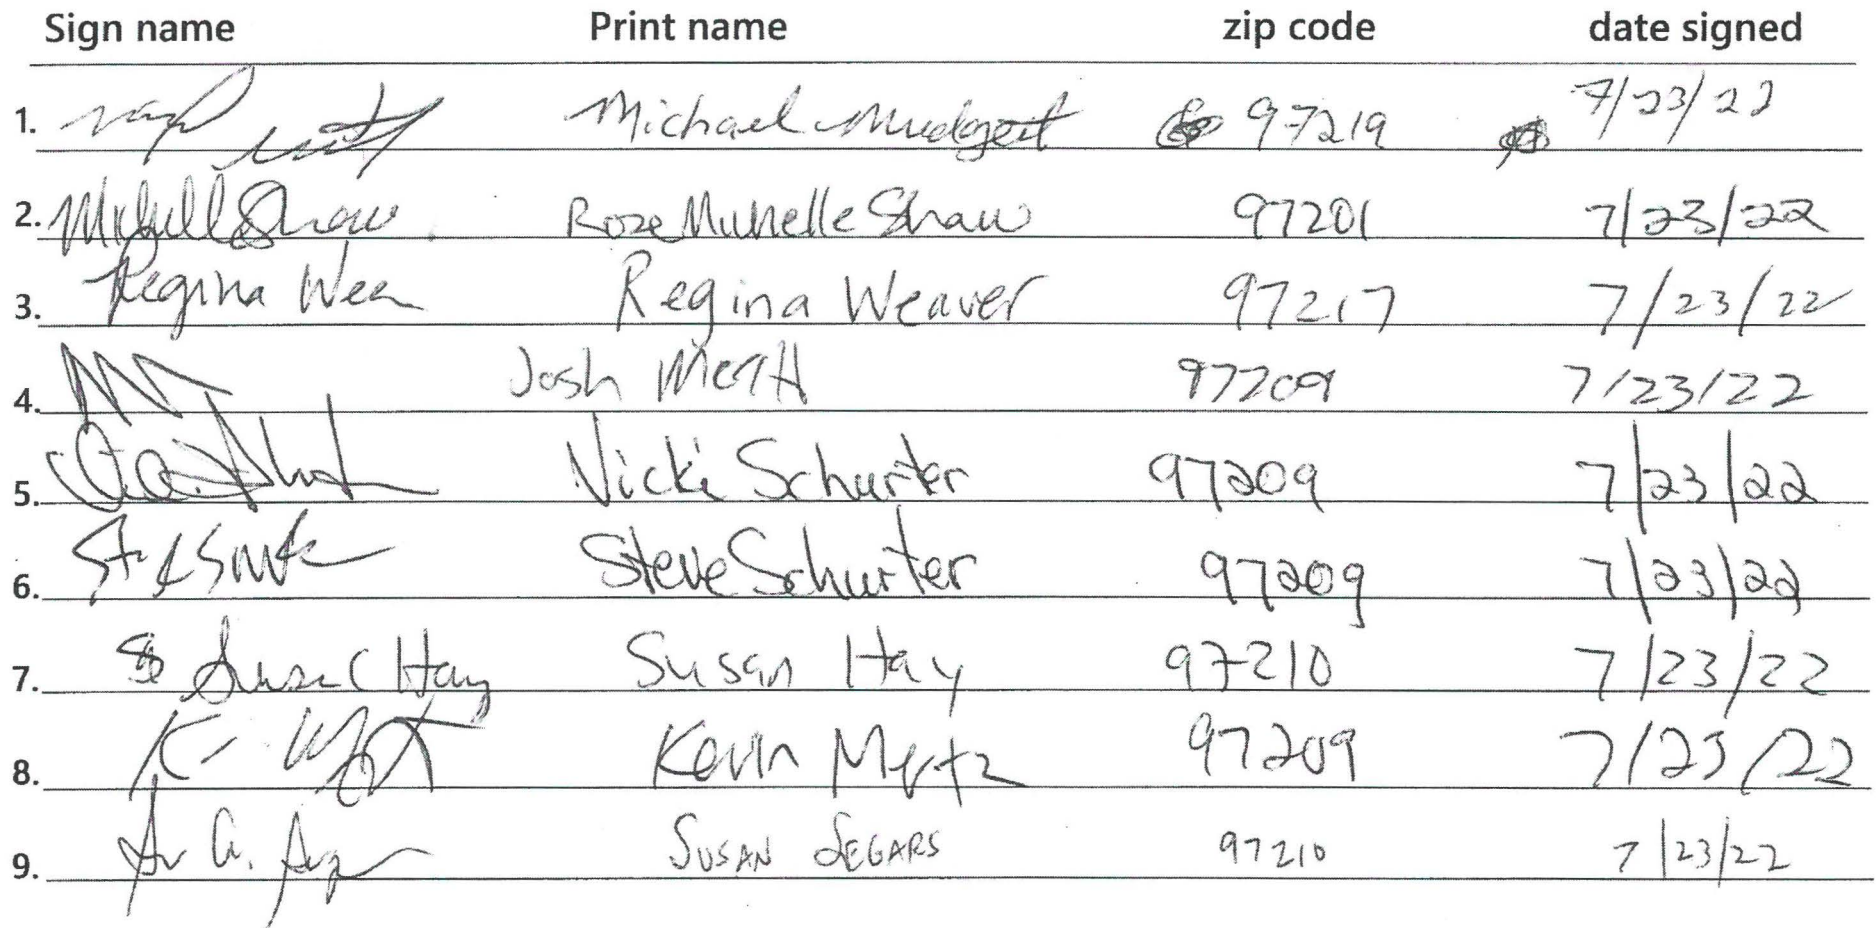 Sign name Print name zip code date signed
1. Michael Mudgett 97219 7/23/22
2. Michelle Shaw Roze Michelle Shaw 97201 7/23/22
3. Regina Weaver 97217 7/23/22
4. Josh 97209 7/23/22
5. Vicki Schurter 97209 7/23/22
6. Steve Schurter 97209 7/23/22
7. Susan C Hay Susan Hay 97210 7/23/22
8. Kevin Mertz 97209 7/23/22
9. SUSAN SEGARS 97210 7/23/22